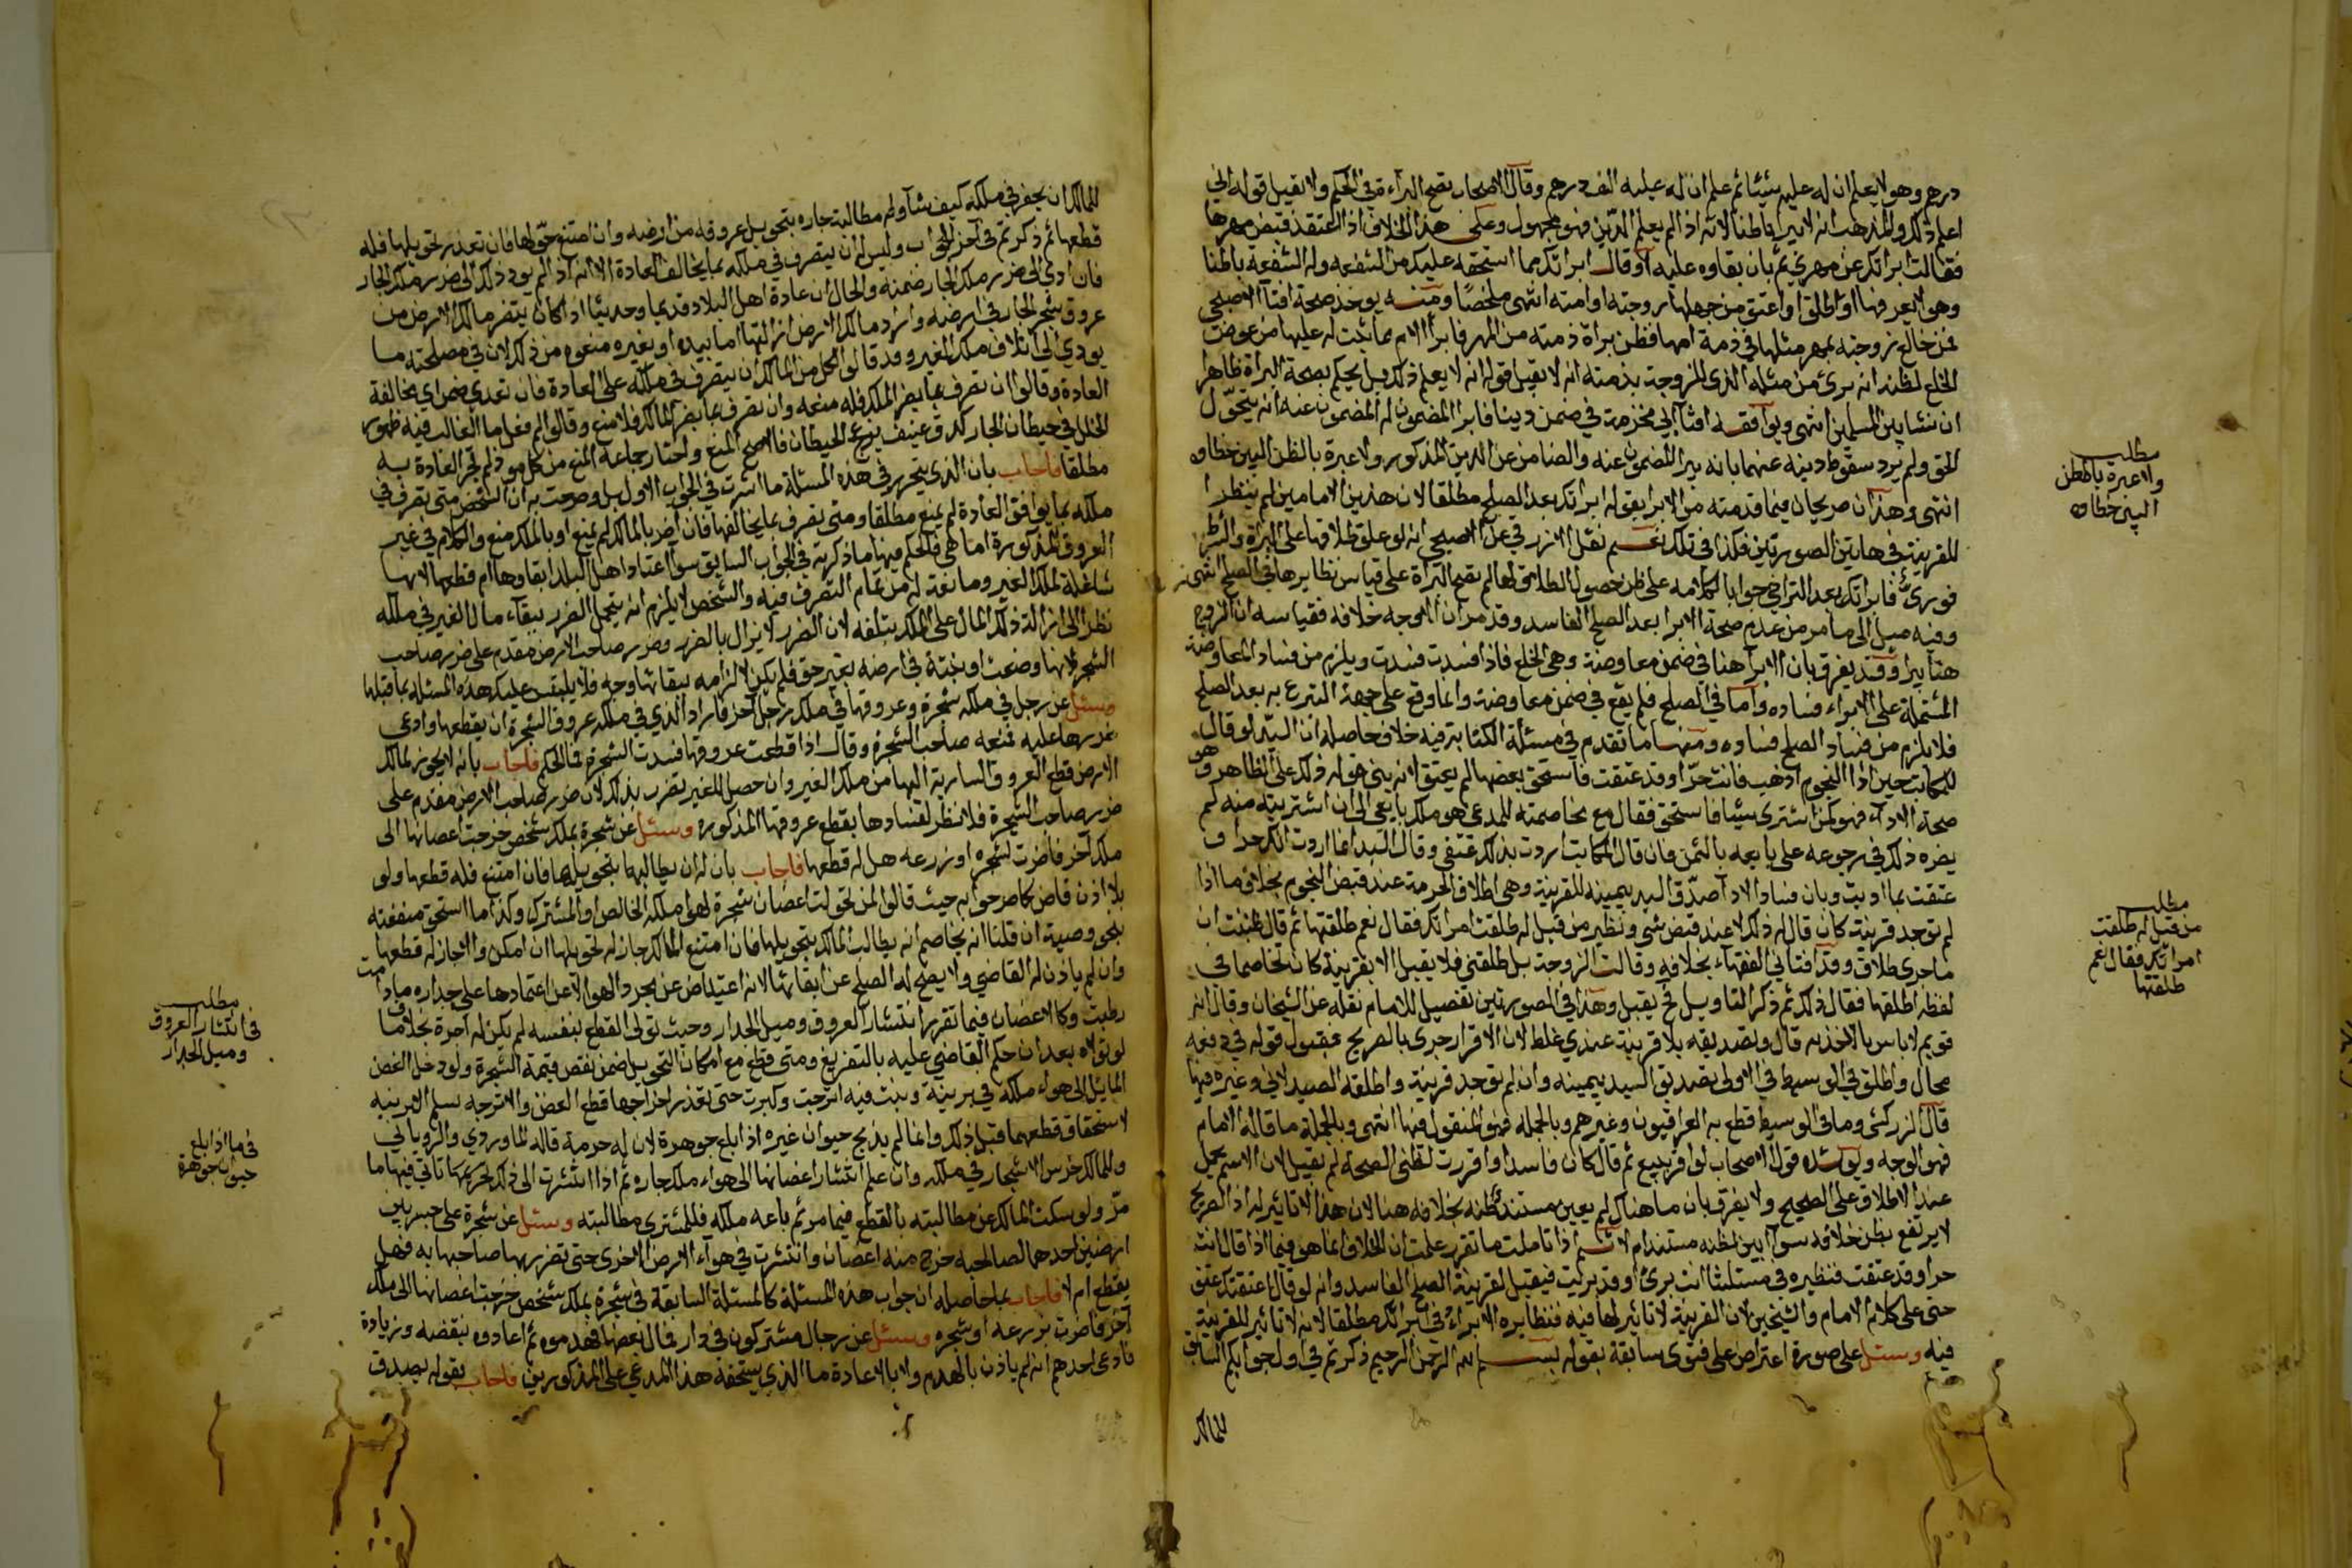 درهم وهو لا يعلم ان له عليه شيئا ثم علم ان له عليه الف درهم وقال الاصحاب تصح البرآءة في الحكم ولا تقبل قوله اني لم
اعلم ذلك والمذهب انه لا يبرأ باطنا لانه اذا لم يعلم الدين فهو مجهول وعلى هذا الخلاف اذا اعتقد قبض مهرها
فقالت ابراتك عن مهري ثم بان بقاوه عليه او قال ابراتك مما استحقه عليك من الشفعه وله الشفعة باطنا
وهو لا يعرفها او طلق او اعتق من جهلها زوجته او امته انتهى ملخصا ومنه يوخذ صحة افتآء الاصبحي
فمن خالع زوجته بمهر مثلها في ذمة امها فظن براة ذمته من المهر فابرأ الام عما ثبت له عليها من عوض
الخلع لظنه انه برئ من مثله الذي للزوجة بذمته انه لا تقبل قوله انه لا يعلم ذلك بل يحكم بصحة البرأة ظاهرا
ان نشا بين المسلمين انتهى ويوافقه افتآ ابي مخرمة في ضمن دينا فابرا المضمون له المضمون عنه انه يتحول
الحق ولم يرد سقوط دينه عنهما بانه يبرا المضمون عنه والضامن عن الدين المذكور ولا عبرة بالظن البين خطاوه
انتهى وهذان صريحان فيما قدمته من الابرا بقوله ابراتك بعد الصلح مطلقا لان هذين الامامين لم ينظرا
للقرينة في هاتين الصورتين فكذا في تلك نعم نقل الازرق عن الاصبحي انه لو علق طلاقها على البرآة والظرف
فوري فابراتك بعد التراخي جوابا لكلامه على ظن حصول الطلاق لها لم تصح البرآة على قياس نظايرها في الصلح انتهى
وفيه ميل الى ما مر من عدم صحة الابرا بعد الصلح الفاسد وقد مر ان الاوجه خلافه فقياسه ان الزوج
هنا يبرا وقد يفرق بان الابرآ هنا في ضمن معاوضة وهي الخلع فاذا فسدت فسدت ويلزم من فساد المعاوضة
المشتملة على الابراء فساده واما في الصلح فلم يقع في ضمن معاوضة وانما وقع على جهة التبرع به بعد الصلح
فلا يلزم من فساد الصلح فساده ومنها ما تقدم في مسئلة الكتابة فيه خلاف حاصله ان السيد لو قال
للمكاتب حين ادا النجوم اذهب فانت حرا وقد عتقت فاستحق بعضها لم يعتق لانه بنى قوله ذلك على الظاهر وهو
صحة الادآء فهو كمن اشترى شيئا فاستحق فقال مع مخاصمته للمدعي هو ملك بايعي الى ان اشتريته منه لم
يضره ذلك في رجوعه على بايعه بالثمن فان قال المكاتب اردت بذلك عتقي وقال السيد انما اردت انك حرا و
عتقت بما اديت وبان فساد الادآ صدق السيد بيمينه للقرينة وهي اطلاق الحرمة عند قبض النجوم بخلاف ما اذا
لم توجد قرينة كان قال له ذلك لا عند قبض شي ونظير من قيل له طلقت امراتك فقال نعم طلقتها ثم قال ظننت ان
ما جرى طلاق وقد افتاني الفقهآء بخلافه وقالت الزوجة بل طلقتني فلا يقبل الا بقرينة كان تخاصما في
لفظه اطلقها فقال ذلك ثم ذكر التاويل نحو يقبل وهذا في الصورتين تفصيل للامام نقله عن الشيخان وقال انه
قويم لا باس بالاخذ به قال وتصديقه بلا قرينة عندي غلط لان الاقرار جرى بالصريح فقبول قوله في دفعه
محال واطلق في الوسيط في الاولى تصديق السيد بيمينه وان لم توجد قرينة واطلقه الصيدلاني وغيره فيها
قال الزركشي وما في الوسيط قطع به العراقيون وغيرهم وبالجملة فهو المنقول فيها انتهى وبالجملة ما قاله الامام
فهو الاوجه ويويده قول الاصحاب لو اقر ببيع ثم قال كان فاسدا واقررت لظني الصحة لم يقبل لان الاسم يحمل
عند الاطلاق على الصحيح ولا يفرق بان ما هناك لم يعين مستند ظنه بخلافه هنا لان هذا لا تاثير له اذ الصريح
لا يرتفع بظن خلافه سوآ بين لظنه مستندا ام لا ثم اذا تاملت ما تقرر علمت ان الخلاف انما هو فيما اذا قال انت
حرا وقد عتقت فنظيره في مسئلتنا انت بريا او قد بريت فيقبل لقرينة الصلح الفاسد وانه لو قال اعتقتك عتق
حتى على كلام الامام والشيخين لان القرينة لا تاثير لها فيه فنظايره الابراء في ابراتك مطلقا لانه لا تاثير للقرينة
فيه وسئل على صورة اعتراض على فتوى سابقة بقوله بسم الله الرحمن الرحيم ذكرتم في اول جوابكم السابق
للمالك
مطلب
ولا عبرة بالظن
البين خطاوه
مطلب
من قيل له طلقت
امراتك فقال نعم
طلقتها
للمالك ان يحفر في ملكه كيف شآ وله مطالبة جاره بتحويل عروقه من ارضه وان امتنع حولها فان تعذر تحويلها فله
قطعها ثم ذكرتم في آخر الجواب وليس له ان يتصرف في ملكه بما يخالف العادة الا انه اذا لم يود ذلك الى ضرر ملك الجار
فان ادي الى ضرر ملك الجار ضمنه والحال ان عادة اهل البلاد قديما وحديثا اذا كان يتضرر مالك الارض من
عروق شجر الجار في ارضه واراد مالك الارض ازالتها اما بيده او بغيره منعوه من ذلك لان في مصلحته ما
يودي الى اتلاف ملك الغير وقد قالوا لكل من الملاك ان يتصرف في ملكه على العادة فان تعدي ضمن اي بمخالفة
العادة وقالوا ان تصرف بما يضر الملك فله منعه وان تصرف بما يضر المالك فلا منع وقالوا لو فعل ما الغالب فيه ظهور
الخلل في حيطان الجار كدق عنيف يزعج الحيطان فالاصح المنع واختار جماعة المنع من كل موذ لم تجر العادة به
مطلقا فاجاب بان الذي يتحرر في هذه المسئلة ما اشرت في الجواب الاول بل وصرحت به ان الشخص متى تصرف في
ملكه بما يوافق العادة لم يمنع مطلقا ومتى تصرف بما يخالفها فان اضر بالمالك لم يمنع او بالملك منع والكلام في غير
العروق المذكورة اما هي فالحكم فيها ما ذكرته في الجواب السابق سوآ اعتاد اهل البلد ابقاوها ام قطعها لانها
شاغلة لملك الغير ومانعة له من تمام التصرف فيه والشخص لا يلزم انه يتحمل الضرر ببقآء مال الغير في ملكه
نظر الى ازالة ذلك المال على الملك بتلفه لان الضرر لا يزال بالضرر وضرر صاحب الارض مقدم على ضرر صاحب
الشجر لانها وضعت او نبتة في ارضه بغير حق فلم يكن لالزامه ببقائها وجه فلا يلتبس عليك هذه المسئله بما قبلها
وسئل عن رجل في ملكه شجرة وعروقها في ملك رجل آخر فاراد الذي في ملكه عروق الشجرة ان يقطعها وادعى
ضررها عليه فمنعه صاحب الشجرة وقال اذا قطعت عروقها فسدت الشجرة فما الحكم فاجاب بانه لا يجوز لمالك
الارض قطع العروق السارية اليها من ملك الغير وان حصل للغير تضرر بذلك لان ضرر صاحب الارض مقدم على
ضرر صاحب الشجرة فلا نظر لفسادها بقطع عروقها المذكورة وسئل عن شجرة بملك شخص خرجت اغصانها الى
ملك آخر فاضرت لشجره او زرعه هل له قطعها فاجاب بان له ان يطالبه بتحويلها فان امتنع فله قطعها ولو
بلا اذن قاض كما صرحوا به حيث قالوا لمن تحولت اغصان شجرة لهواء ملكه الخالص او المشترك وكذا ما استحق منفعته
بنحو وصية ان قلنا انه يخاصم انه يطالب المالك بتحويلها فان امتنع المالك جاز له تحويلها ان امكن والا جاز له قطعها
وان لم ياذن له القاضي ولا يصح له الصلح عن ابقائها لانه اعتياض عن مجرد الهوا لا عن اعتمادها على جداره ما دامت
رطبة وكالاغصان فيما تقرر انتشار العروق وميل الجدار وحيث تولى القطع بنفسه لم يكن له اجرة بخلاف ما
لو تولاه بعد ان حكم القاضي عليه بالتفريغ ومتى قطع مع امكان التحويل ضمن نقص قيمة الشجرة ولو دخل الغصن
المائل الى هواء ملكه في برنية ونبت فيه اترجت وكبرت حتى تعذر اخراجها قطع الغصن والاترجه لسلم البرنيه
لاستحقاق قطعهما قبل ذلك وانما لم يذبح حيوان غيره اذا بلع جوهرة لان له حرمة قاله الماوردي والروياني
وللمالك غرس الاشجار في ملكه وان علم انتشار اغصانها الى هواء ملك جاره ثم اذا انتشرت الى ذلك تاتي فيها ما
مر ولو سكت المالك عن مطالبته بالقطع فيما مر ثم باعه ملكه فللمشتري مطالبته وسئل عن شجرة على جسر بين
ارضين احدهما لصاحبه خرج منه اغصان وانتشرت في هوآء الارض الاخرى حتى تضرر بها صاحبها به فهل
يقطع ام لا فاجاب بما حاصله ان جواب هذه المسئلة كالمسئلة السابقة في شجرة بملك شخص خرجت اغصانها الى ملك
آخر فاضرت بزرعه او شجره وسئل عن رجال مشتركون في دار فمال بعضها فهدموه ثم اعادوه بنقضه وزيادة
فادعى احدهم انه لم ياذن بالهدم ولا بالاعادة ما الذي يستحقه هذا المدعي على المذكورين فاجاب بقوله يصدق
مطلب
في انتشار العروق
وميل الجدار
في ما اذا بلع
حيوان جوهرة